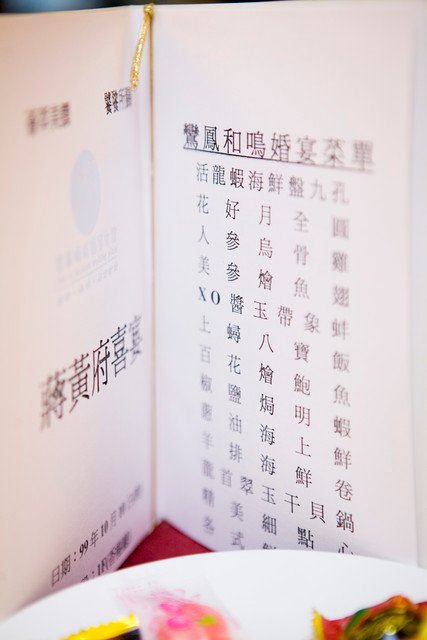 蔣黃府喜宴
鸞鳳和鳴婚宴菜單
活龍蝦海鮮盤九孔
花好月全圓
人參烏骨雞
美參燴魚翅
XO醬玉帶象蚌
上蟳八寶飯
百花燴鮑魚
椒鹽焗明蝦
蔥油海上鮮
羊排海鮮卷
龍首翠玉干貝鍋
精美細點心
日期：99年10月